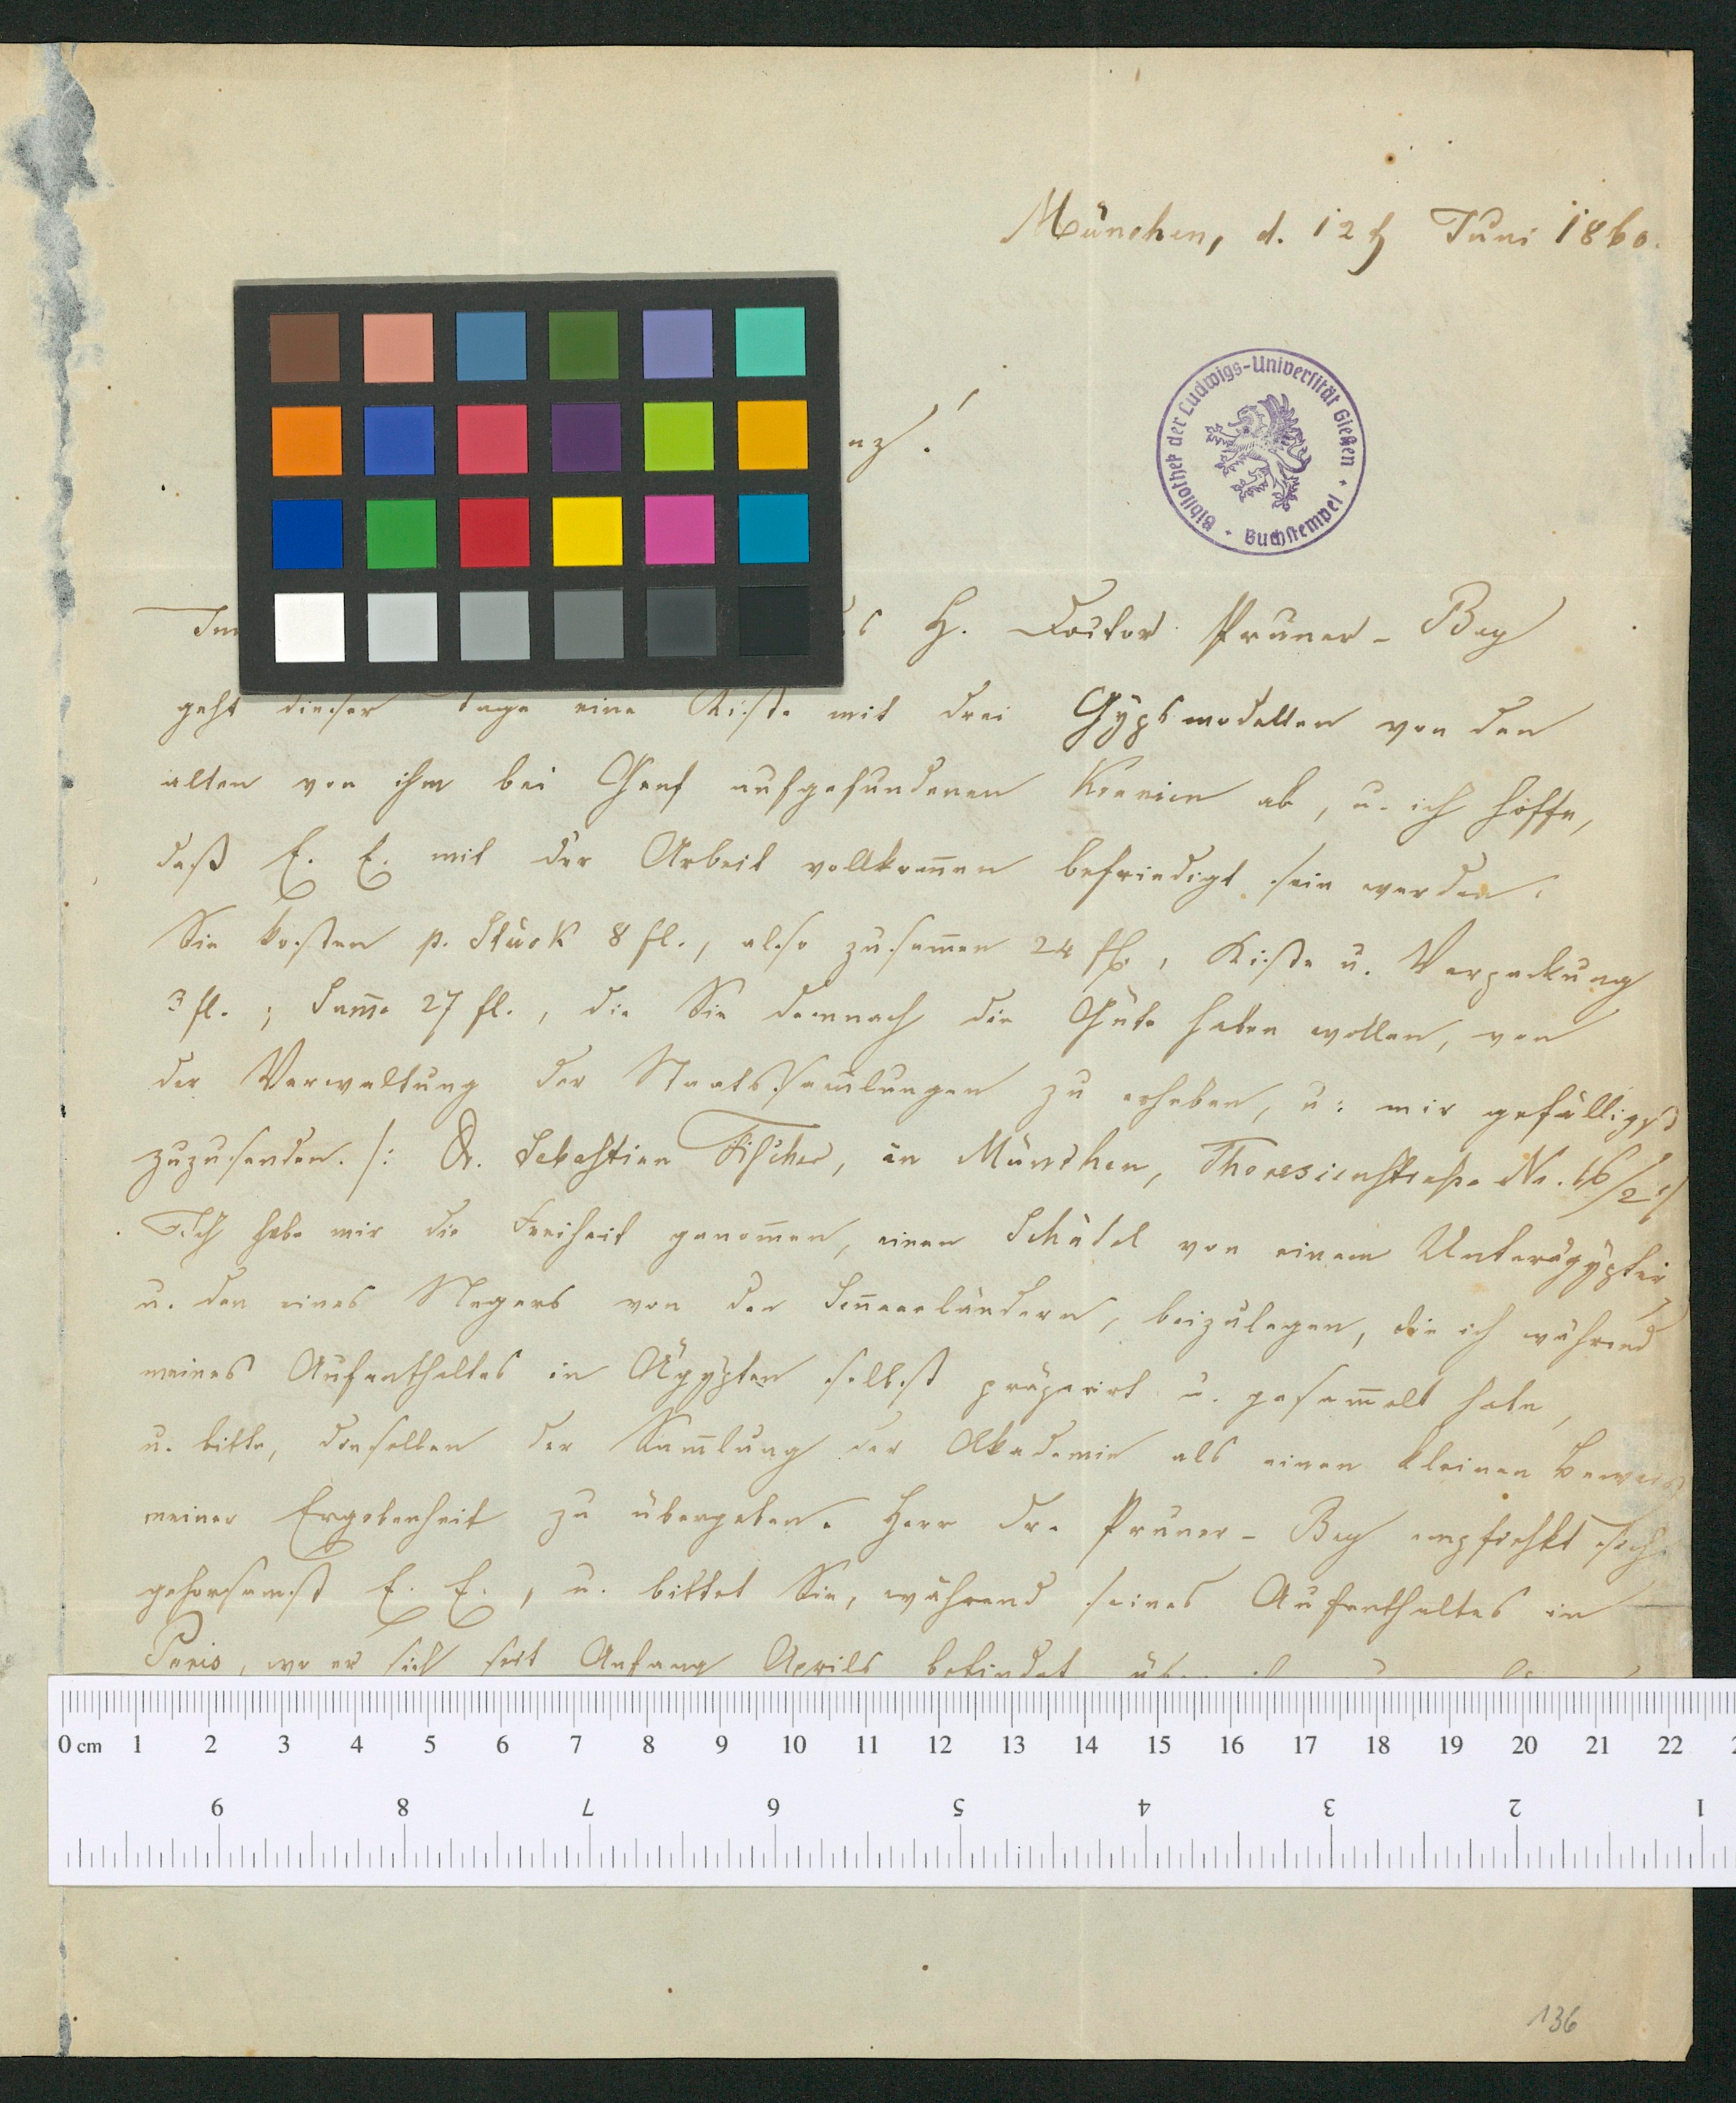 München, d. 12t Juni 1860.
nz!
Bibliothek der Ludwigs-Universität Gießen
Buchstempel
Im
H. Doctor Pruner-Bey
geht dieser Tage eine Kiste mit drei Gypsmodellen von den
alten von ihm bei Genf aufgefundenen Kranien ab, u. ich hoffe,
daß E. E. mit der Arbeit vollkom̄en befriedigt sein werden.
Sie kosten p. Stück 8 fl., also zusam̄en 24 fl., Kiste u. Verpackung
3 fl.; Sum̄e 27 fl., die Sie demnach die Güte haben wollen, von
der Verwaltung der Staatssam̄lungen zu erheben, u: mir gefälligst
zuzusenden. /: Dr. Sebastian Fischer, in München, Theresienstraße No. 16/2 :/
Ich habe mir die Freiheit genom̄en, einen Schädel von einem Unterägypter,
u. den eines Negers von den Sen̄aarländern, beizulegen, die ich während
meines Aufenthaltes in Ägypten selbst präparirt u. gesam̄elt habe,
u. bitte, dieselben der Sam̄lung der Akademie als einen kleinen Beweis
meiner Ergebenheit zu übergeben. Herr Dr. Pruner-Bey empfiehlt sich
gehorsamst E. E., u. bittet Sie, während seines Aufenthaltes in
Paris, wo er sich seit Anfang Aprils befindet
0 cm 1 2 3 4 5 6 7 8 9 10 11 12 13 14 15 16 17 18 19 20 21 22
9 8 7 6 5 4 3 2 1
136